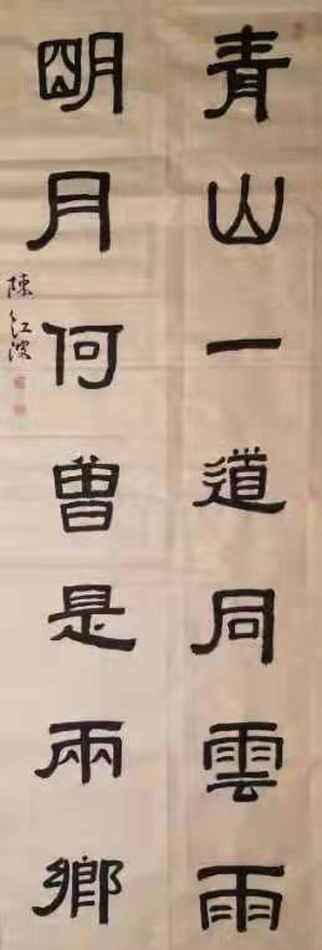 青山一道同雲雨
明月何曽是兩鄉
陳紅波